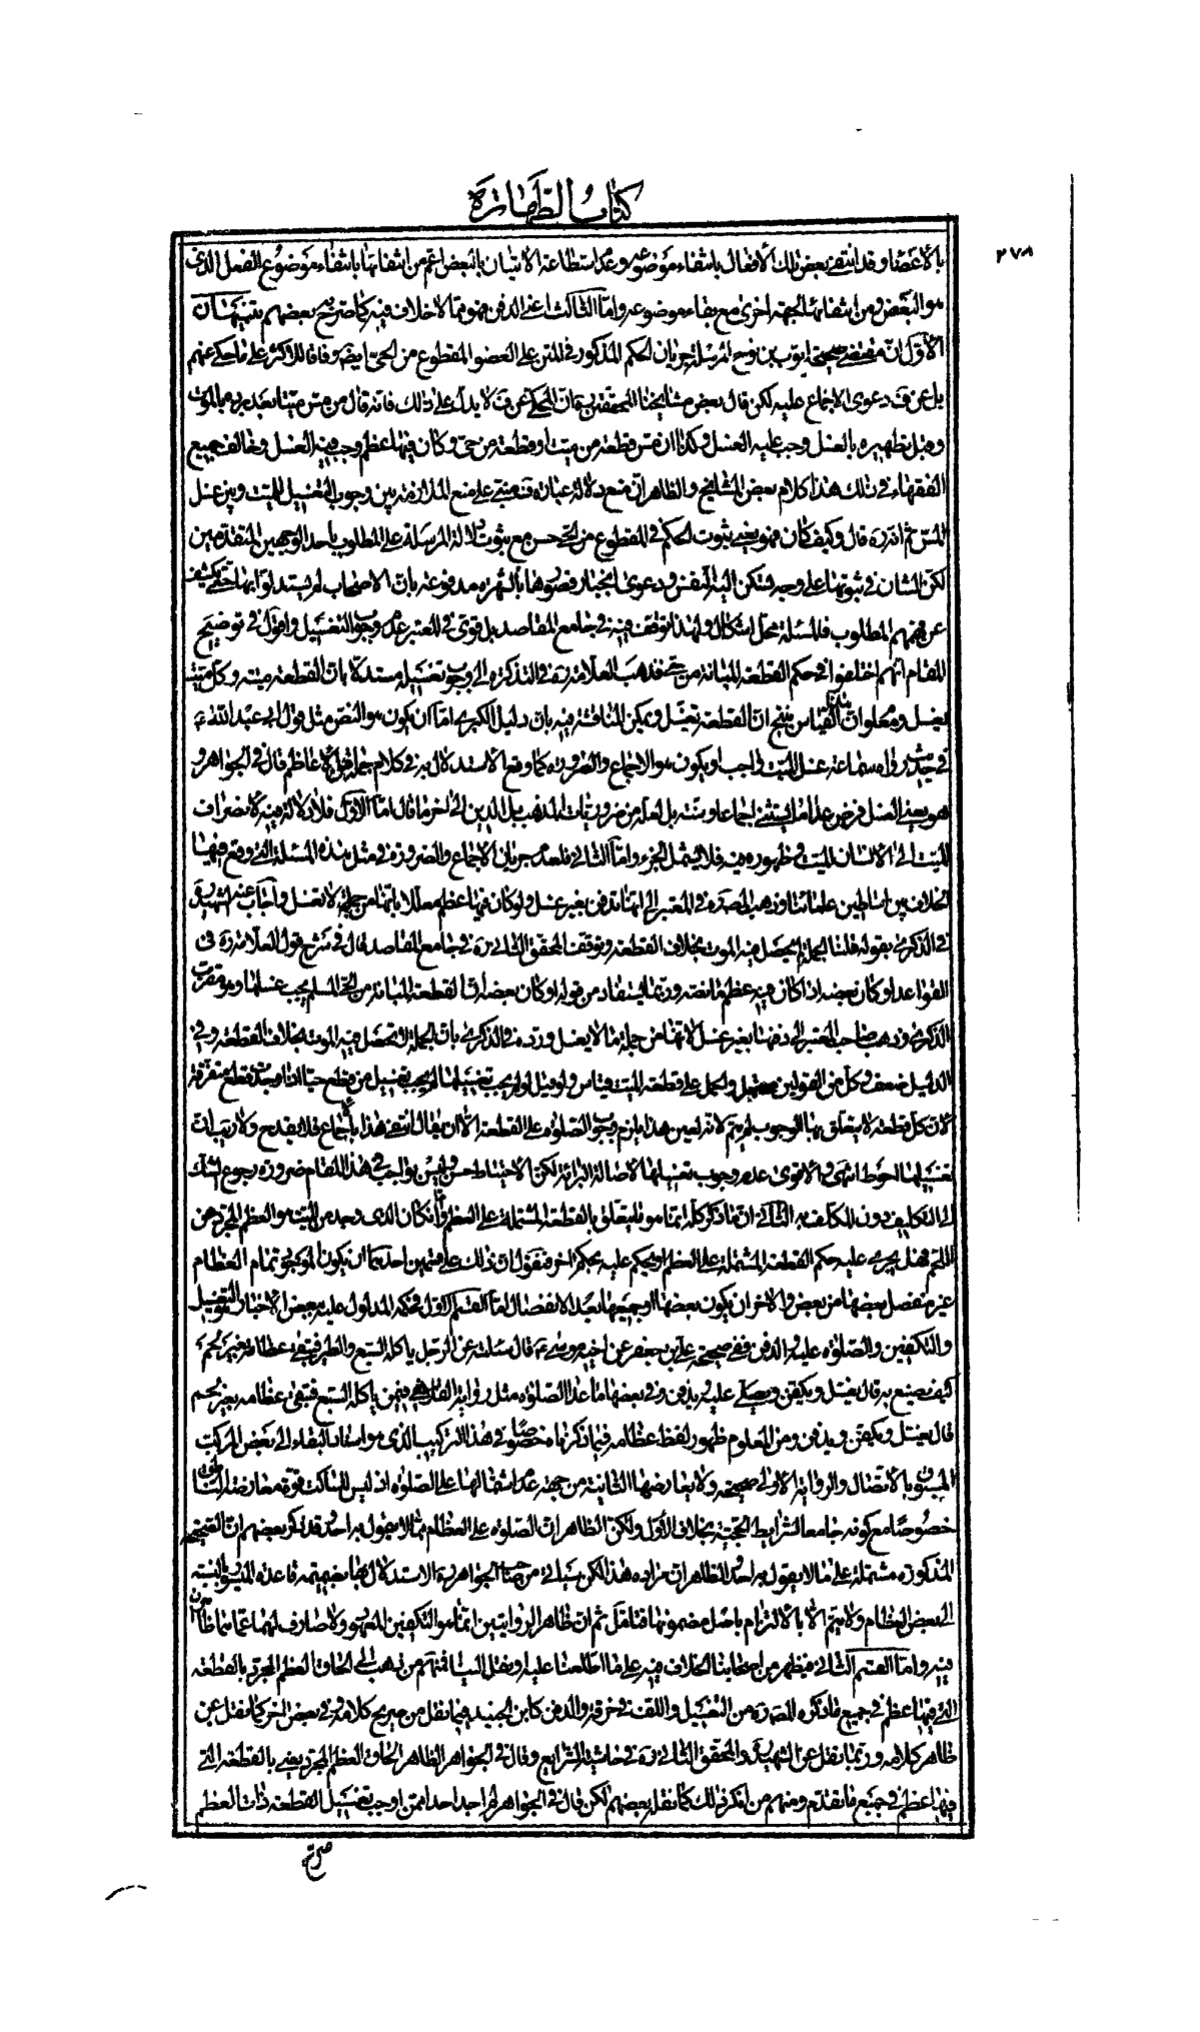 كتاب الطهارة
٢٧٨
بالأعضاء وقد انتفى بعض تلك الأفعال بانتفاء موضوعه وعدم استطاعة الاتيان بالبعض اعم من انتفائها بانتفاء موضوع الفعل الذى
هو البعض ومن انتفائها لجهة اخرى مع بقاء موضوعه وامّا الثالث اعنى الدفن فهو ممّا لا خلاف فيه كما صرّح به بعضهم تنبيهان
الأوّل انّ مقتضى صحيحة ايّوب بن نوح المرسلة جريان الحكم المذكور فى المتن على العضو المقطوع من الحىّ ايضا وفاقا للأكثر على ما حكى عنهم
بل عن ف دعوى الاجماع عليه لكن قال بعض مشايخنا المحققين انّ المحكى عن ف لا يدلّ على ذلك فانه قال من مسّ ميّتا بعد برده بالموت
وقبل تطهيره بالغسل وجب عليه الغسل وكذا ان مسّ قطعة من ميّت او قطعة من حىّ وكان فيها عظم وجب فيه الغسل وخالف جميع
الفقهاء فى ذلك هذا كلام بعض المشايخ والظاهر انّ منع دلالة عبارة ف مبنى على منع الملازمة بين وجوب التغسيل للميّت وبين غسل
المسّ ثم انه ره قال وكيف كان فهو يعنى ثبوت الحكم فى المقطوع من الحىّ حسن مع ثبوت دلالة المرسلة على المطلوب بأحد الوجهين المتقدمين
لكن الشأن فى ثبوتها على وجه تسكن اليه النفس ودعوى انجبار قصورها بالشهرة مدفوعة بان الاصحاب لم يستدلّوا بها حتى يكشف
عن فهمهم المطلوب فالمسئلة محل اشكال ولهذا توقف فيه فى جامع المقاصد بل قوّى فى المعتبر عدم وجوب التغسيل واقول فى توضيح
المقام انّهم اختلفوا فى حكم القطعة المبانة من حىّ فذهب العلامة ره فى التذكرة الى وجوب تغسيله مستدلا بان القطعة ميتة وكل ميتة
يغسل ومعلوم ان هذا القياس ينتج ان القطعة تغسّل ويمكن المناقشة فيه بان دليل الكبرى امّا ان يكون هو النصّ مثل قول ابى عبد اللّه ع
فى حديث رواه سماعة غسل الميّت واجب او يكون هو الاجماع والضرورة كما وقع الاستدلال به فى كلام جماعة من الاعاظم قال فى الجواهر و
هو يعنى الغسل فرض عدا ما استثنى اجماعا وسنّة بل لعلّه من ضروريات المذهب بل الدين الى اخر ما قال امّا الأوّل فلا دلالة فيه لانصراف
الميّت الى الانسان الميّت وظهوره فيه فلا يشمل الجزء وامّا الثانى فلعدم جريان الاجماع والضرورة فى مثل هذه المسئلة التى وقع فيها
الخلاف بين اساطين علمائنا وذهب المصنف ره فى المعتبر الى انها تدفن بغير غسل ولو كان فيها عظم معلّلا بانها من جملة لا تغسل واجاب عنه الشهيد ره
فى الذكرى بقوله قلنا الجملة لم يحصل فيه الموت بخلاف القطعة وتوقف المحقق الثانى ره فى جامع المقاصد قال فى شرح قول العلامة ره فى
القواعد او كان بعضه اذا كان فيه عظم ما نصّه وربّما يستفاد من قوله او كان بعضه ان القطعة المبانة من الحىّ المسلم يجب غسلها وهو مقرّب
الذكرى وذهب صاحب المعتبر الى دفنها بغير غسل لانّها من جملة ما لا يغسل وردّه فى الذكرى بان الجملة لم يحصل فيه الموت بخلاف القطعة وفى
الدليل ضعف وكل من القولين محتمل والحمل على قطعة الميّت قياس ولو قيل لو لم يجب تغسيلها لم يجب تغسيل من قطع حيّا اذا وجدت قطع متفرّقة
لأن كل قطعة لا يتعلق بها الوجوب لم يتمّ لأنه بعين هذا يلزم وجوب الصلوة على القطعة الّا ان يقال انتفى هذا باجماع فلا يقدح ولا ريب ان
تغسيلها احوط انتهى والأقوى عدم وجوب تغسيلها لاصالة البرائة لكن الاحتياط حسن وليس بواجب فى هذا المقام ضرورة رجوع الشك
الى التكليف دون المكلف به الثانى ان ما ذكر كله انما هو فيما يتعلق بالقطعة المشتملة على العظم وامّا ان كان الذى وجد من الميت هو العظم المجرّد من
اللحم فهل يجرى عليه حكم القطعة المشتملة على العظم او يحكم عليه بحكم اخر فنقول انّ ذلك على قسمين احدهما ان يكون الموجود تمام العظام
غير منفصل بعضها من بعض والاخر ان يكون بعضها او جميعها بعد الانفصال امّا القسم الاوّل فحكمه المدلول عليه ببعض الاخبار التغسيل
والتكفين والصلوة عليه والدفن ففى صحيحة على بن جعفر عن اخيه موسى ع قال سئلته عن الرجل ياكله السبع والطير فيبقى عظامه بغير لحم
كيف يصنع به قال يغسل ويكفن ويصلى عليه ويدفن وفى بعضها ما عدا الصلوة مثل رواية القلانسى فيمن ياكله السبع فتبقى عظامه بغير لحم
قال يغسل ويكفن ويدفن ومن المعلوم ظهور لفظ عظامه فيما ذكرناه خصوصا فى هذا التركيب الذى هو اسناد البقاء الى بعض المركب
المسبوق بالاتصال والرواية الاولى صحيحة ولا يعارضها الثانية من جهة عدم اشتمالها على الصلوة اذ ليس للساكت قوة معارضة الناطق
خصوصا مع كونه جامعا لشرايط الحجيّة بخلاف الأوّل ولكن الظاهر ان الصلوة على العظام ممّا لا يقول به احد وقد ذكر بعضهم ان الصحيحة
المذكورة مشتملة على ما لا يقول به احد والظاهر ان مراده هذا لكن سيأتى من صاحب الجواهر ره الاستدلال بها بضميمة قاعدة الميسور بالنسبة
الى بعض العظام ولا يتمّ الّا بالالتزام باصل مضمونها فتامّل ثم ان ظاهر الروايتين انما هو التكفين المعهود ولا صارف لهما عمّا هما ظاهران
فيه وامّا القسم الثانى فيظهر من اصحابنا الخلاف فيه على ما اطّلعنا عليه او نقل الينا فمنهم من ذهب الى الحاق العظم المجرّد بالقطعة
التى فيها عظم فى جميع ما ذكره المصنف ره من التغسيل واللف فى خرقة والدفن كابن الجنيد فيما نقل من صريح كلامه وفى بعض اخر كما نقل عن
ظاهر كلامه وربّما نقل عن الشهيد ره والمحقق الثانى ره فى حاشية الشرايع وقال فى الجواهر الظاهر الحاق العظم المجرّد يعنى بالقطعة التى
فيها عظم فى جميع ما تقدّم ومنهم من انكر ذلك كما نقله بعضهم لكن قال فى الجواهر لم اجد احدا ممّن اوجب تغسيل القطعة ذات العظم
صرّح